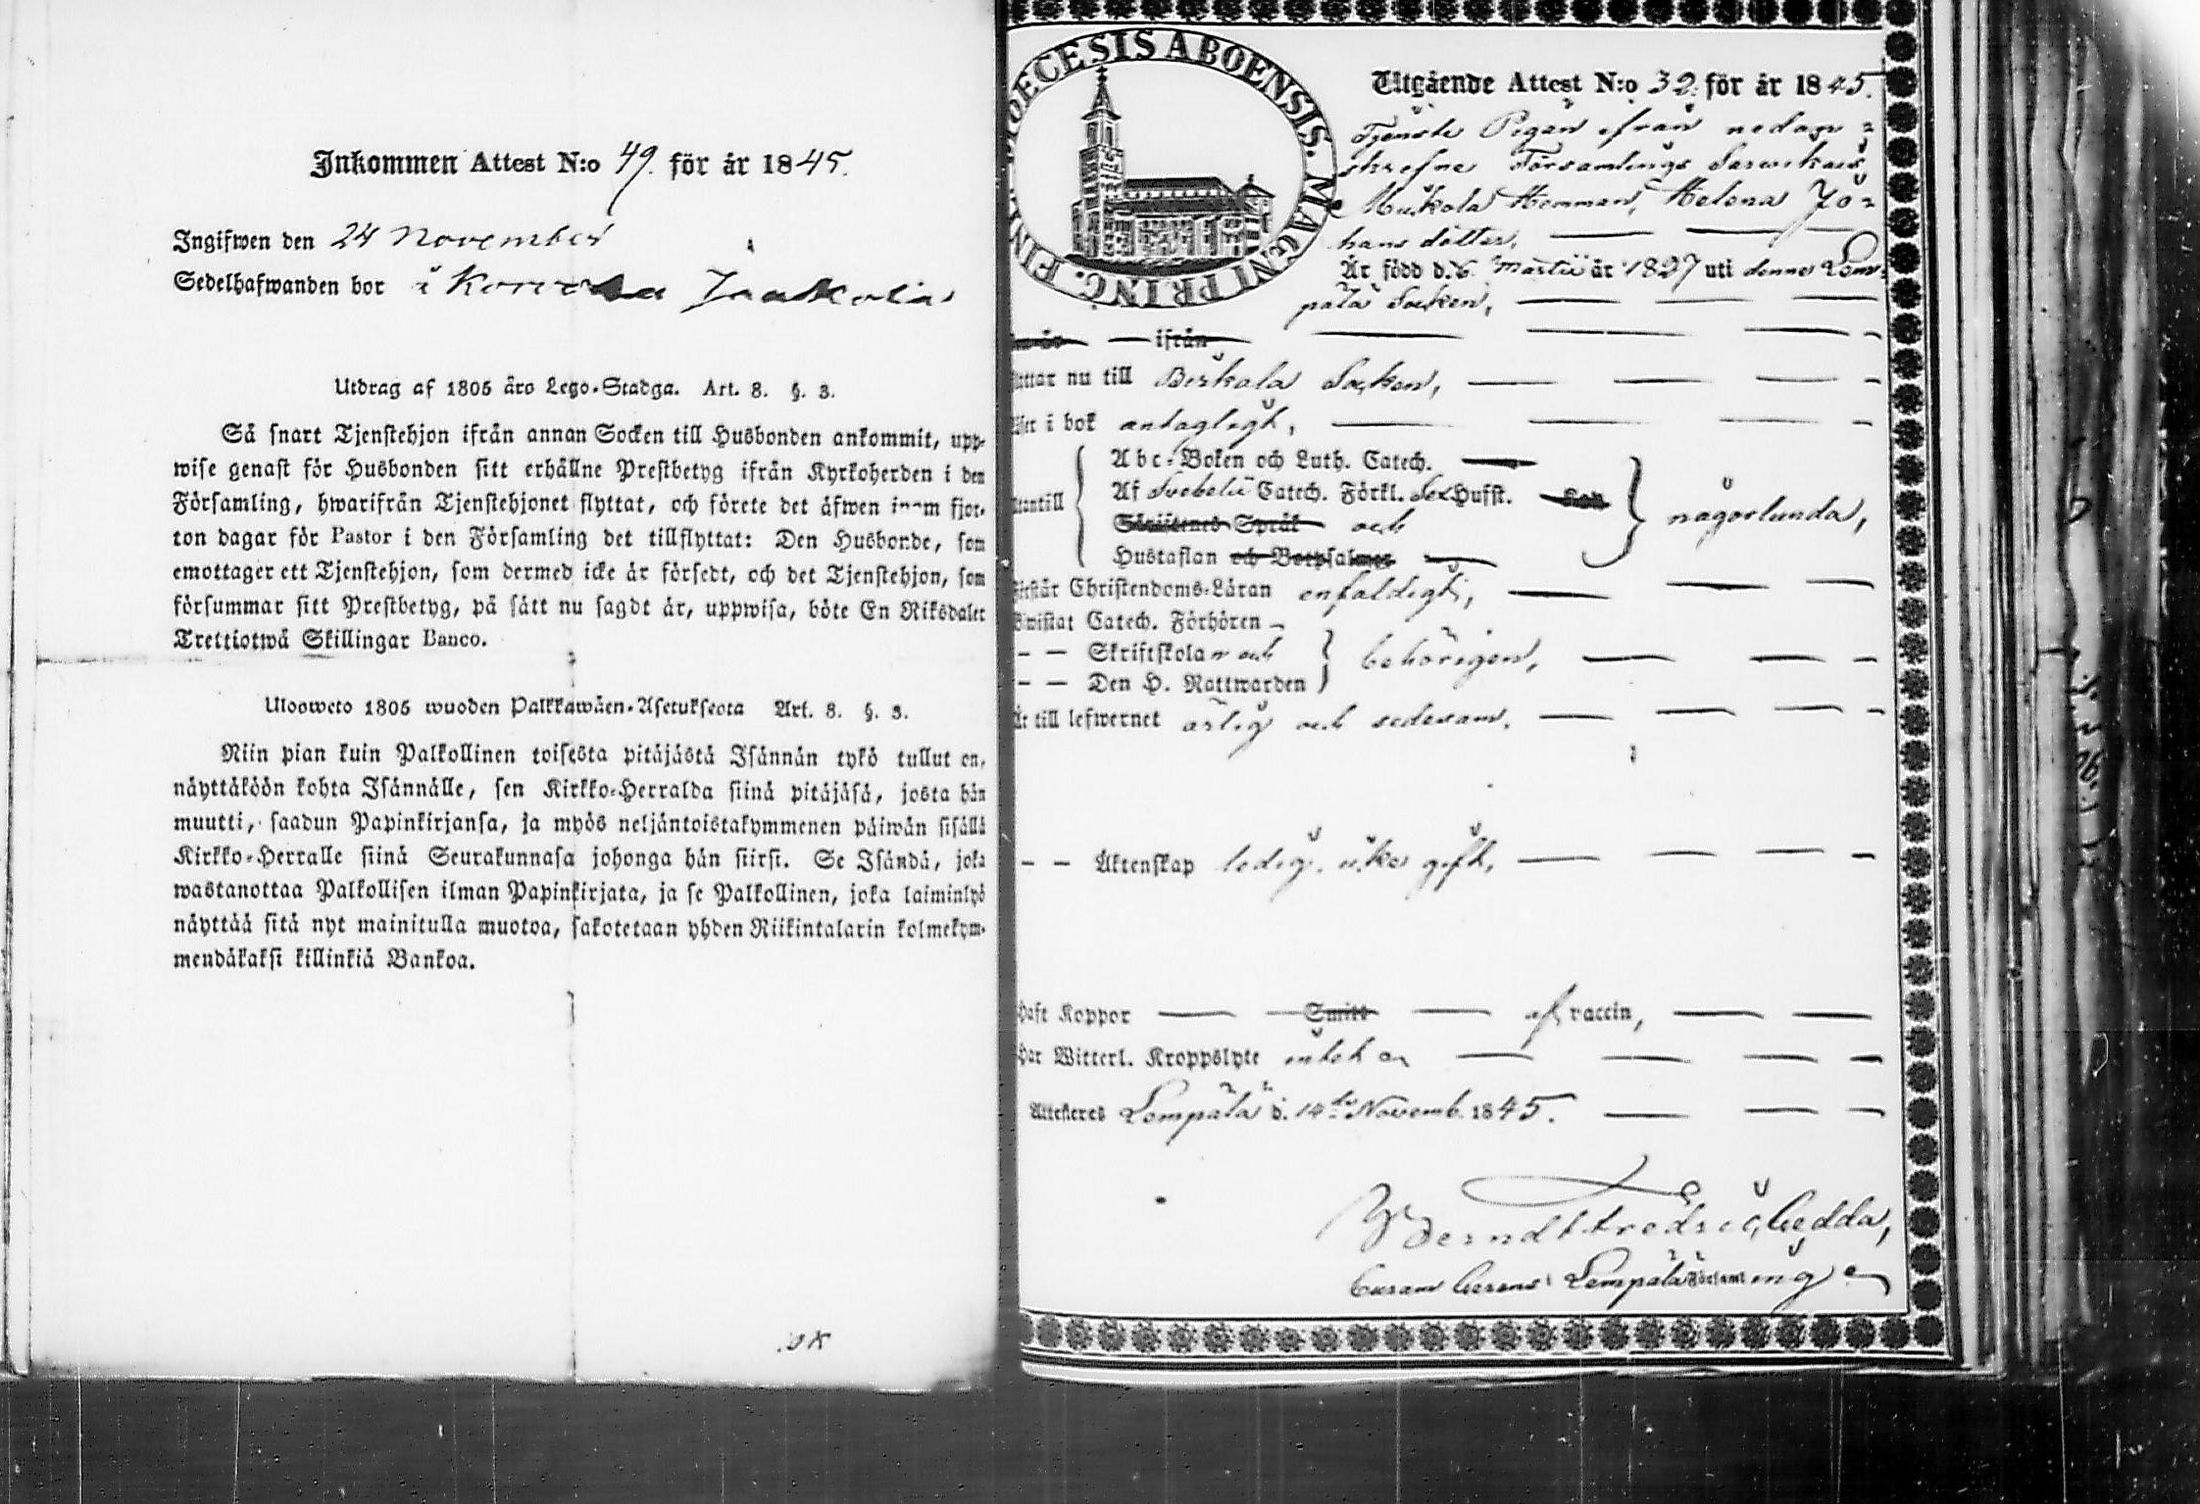 Inkommen Attest N:o 49. för år 1845.
Ingifwen den 24 November
Sedelhafwanden bor i Jaakola
Utdrag af 1805 års Lego-Stadga. Art. 8. §. 3.
Så snart Tjenstehjon ifrån annan Socken till Husbonden ankommit, upp-
wise genast för Husbonden sitt erhållne Prestbetyg ifrån Kyrkoherden i den
Församling, hwarifrån Tjenstehjonet flyttat, och förete det äfwen inom fjor-
ton dagar för Pastor i den Församling det tillflyttat: Den Husbonde, som
emottager ett Tjenstehjon, som dermed icke är försedt, och det Tjenstehjon, som
försummar sitt Prestbetyg, på sätt nu sagdt är, uppwisa, böte En Riksdaler
Trettiotwå Skillingar Banco.
Ulosweto 1805 wuoden Palkkawäen-Asetuksesta Art. 8. §. 3.
Niin pian kuin Palkollinen toisesta pitäjästä Isännän tykö tullut on,
näyttäköön kohta Isännälle, sen Kirkko-Herralda siinä pitäjäsä, josta hän
muutti, saadun Papinkirjansa, ja myös neljäntoistakymmenen päiwän sisällä
Kirkko-Herralle siinä Seurakunnasa johonga hän siirsi. Se Isändä, joka
wastanottaa Palkollisen ilman Papinkirjata, ja se Palkollinen, joka laiminlyö
näyttää sitä nyt mainitulla muotoa, sakotetaan yhden Riikintalarin kolmekym-
mendäkaksi killinkiä Bankoa.
DIOECESIS ABOENSIS. MAGNI PRINC. FINL.
Utgående Attest N:o 32. för år 1845.
Tjenste Pigan ifrån nedan-
skrefne Församlings Sarwikais
Muikola Hemman, Helena Jo-
hans dotter,
Är född d. 6. Martii år 1827 uti denne Lem-
pälä Socken,
ifrån
flyttar nu till Birkala Socken,
Läser i bok antagligt,
Utantill
Abc-Boken och Luth. Catech.
Af Svebelii Catech. Förkl. Sex Hufst.
Skriftenes Språk och
Hustaflan och Botpsalmer
någorlunda,
Förstår Christendoms-Läran enfaldigt,
Bwistat Catech. Förhören
– – Skriftskolan och
– – Den H. Nattwarden
behörigen,
Är till lefwernet ärlig och sedesam,
– – Äktenskap ledig, icke gift,
Haft Koppor Smitt af vaccin,
Har Witterl. Kroppslyte intet
Attesteres Lempälä d. 14de Novemb. 1845.
Berndt Fredric Gedda,
Curam Gerens i Lempälä Församling